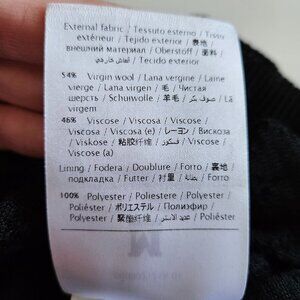 External fabric / Tessuto esterno / Tissu
extérieur / Tejido exterior / 表地 /
внешний материал / Oberstoff / 面料
/ قماش خارجي / Tecido exterior
54% Virgin wool / Lana vergine / Laine
vierge / Lana virgen / 毛 / Чистая
шерсть / Schurwolle / 羊毛 / صوف بكر / Lã
virgem
46% Viscose / Viscosa / Viscose /
Viscosa / Viscosa (e) / レーヨン / Вискоза
/ Viskose / 粘胶纤维 / فسكوز / Viscose /
Viscose (a)
Lining / Fodera / Doublure / Forro / 裏地 /
подкладка / Futter / 衬里 / بطانة / Forro
100% Polyester / Poliestere / Polyester /
Poliéster / ポリエステル / Полиэфир /
Polyester / 聚酯纤维 / عديد الاستر /
Poliéster